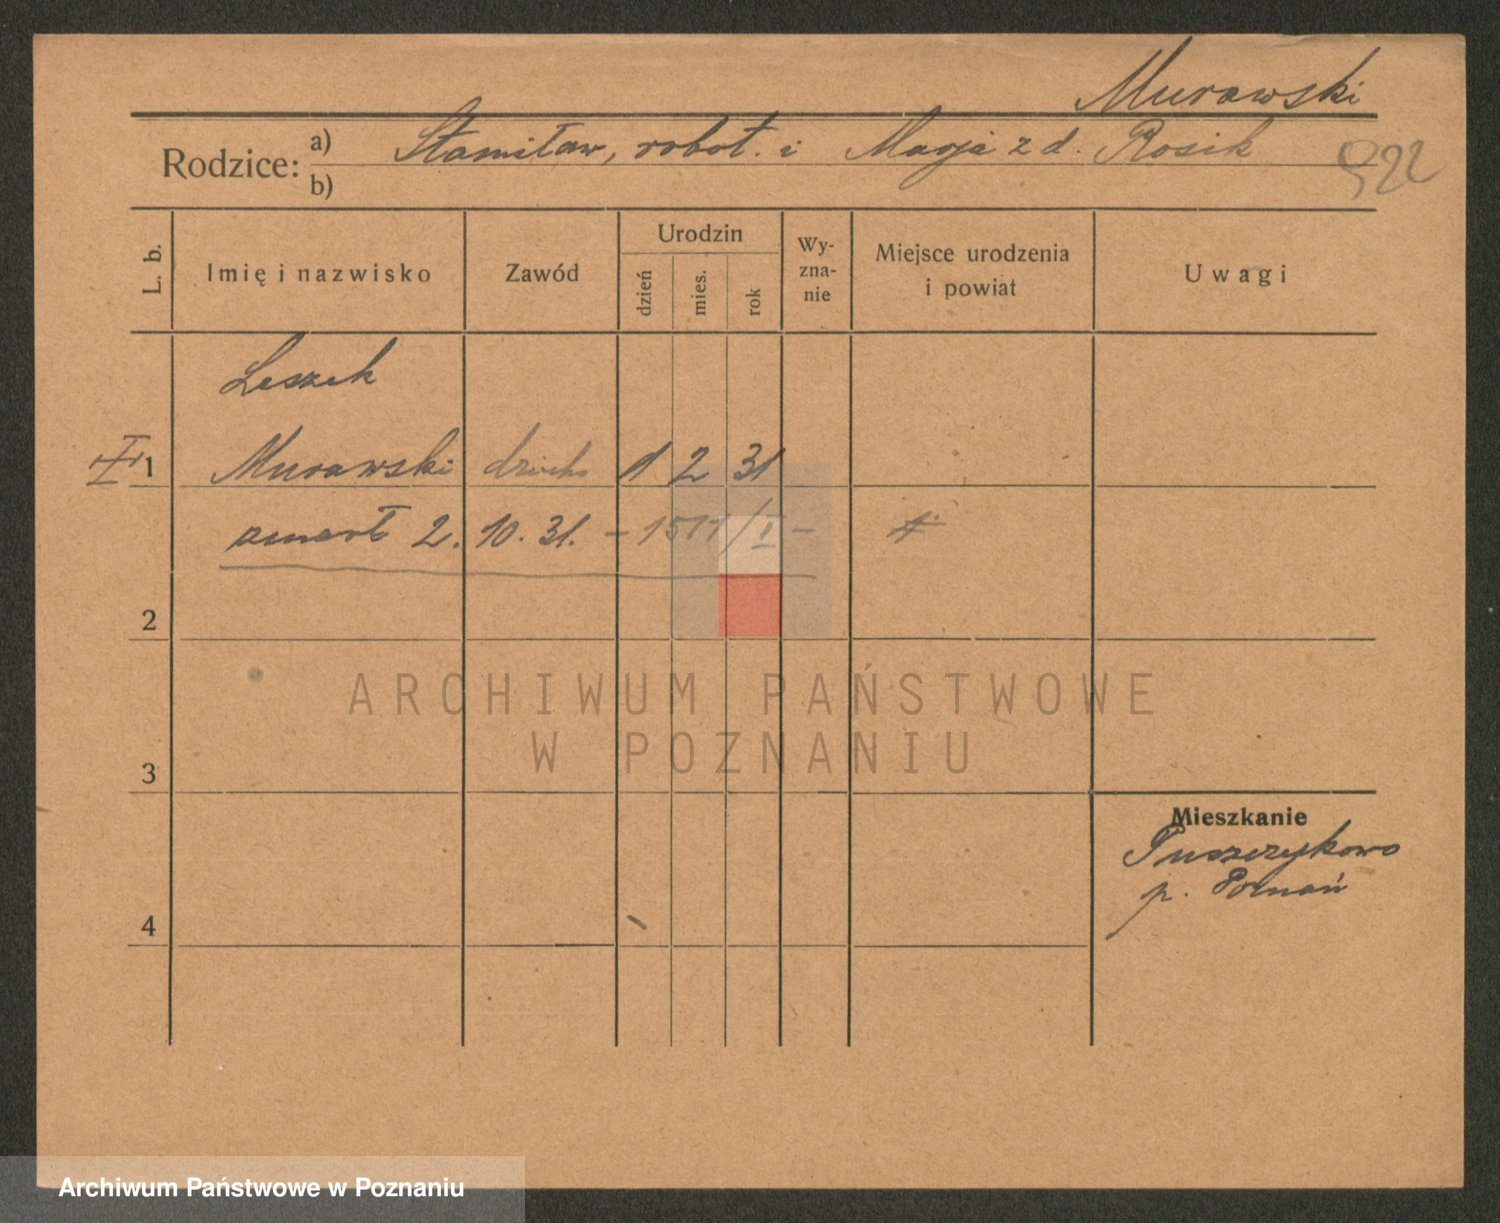 Murawski
Rodzice: a) Stanisław, robot. i Marja z d. Rosik
b)
L. b. Imię i nazwisko Zawód Urodzin dzień mies. rok Wy-zna-nie Miejsce urodzenia i powiat Uwagi
Leszek
1 Murawski dziecko 1 2 31
zmarł 2. 10. 31. – 1511/I –
2
ARCHIWUM PAŃSTWOWE
W POZNANIU
3
Mieszkanie
Puszczykowo
p. Poznań
4
Archiwum Państwowe w Poznaniu